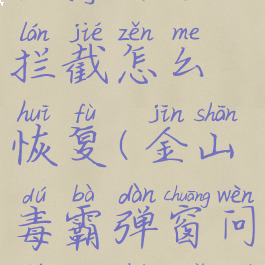 lán jié zěn me
拦截怎么
huī fù jīn shān
恢复(金山
dú bà dàn chuāng wèn
毒霸弹窗问